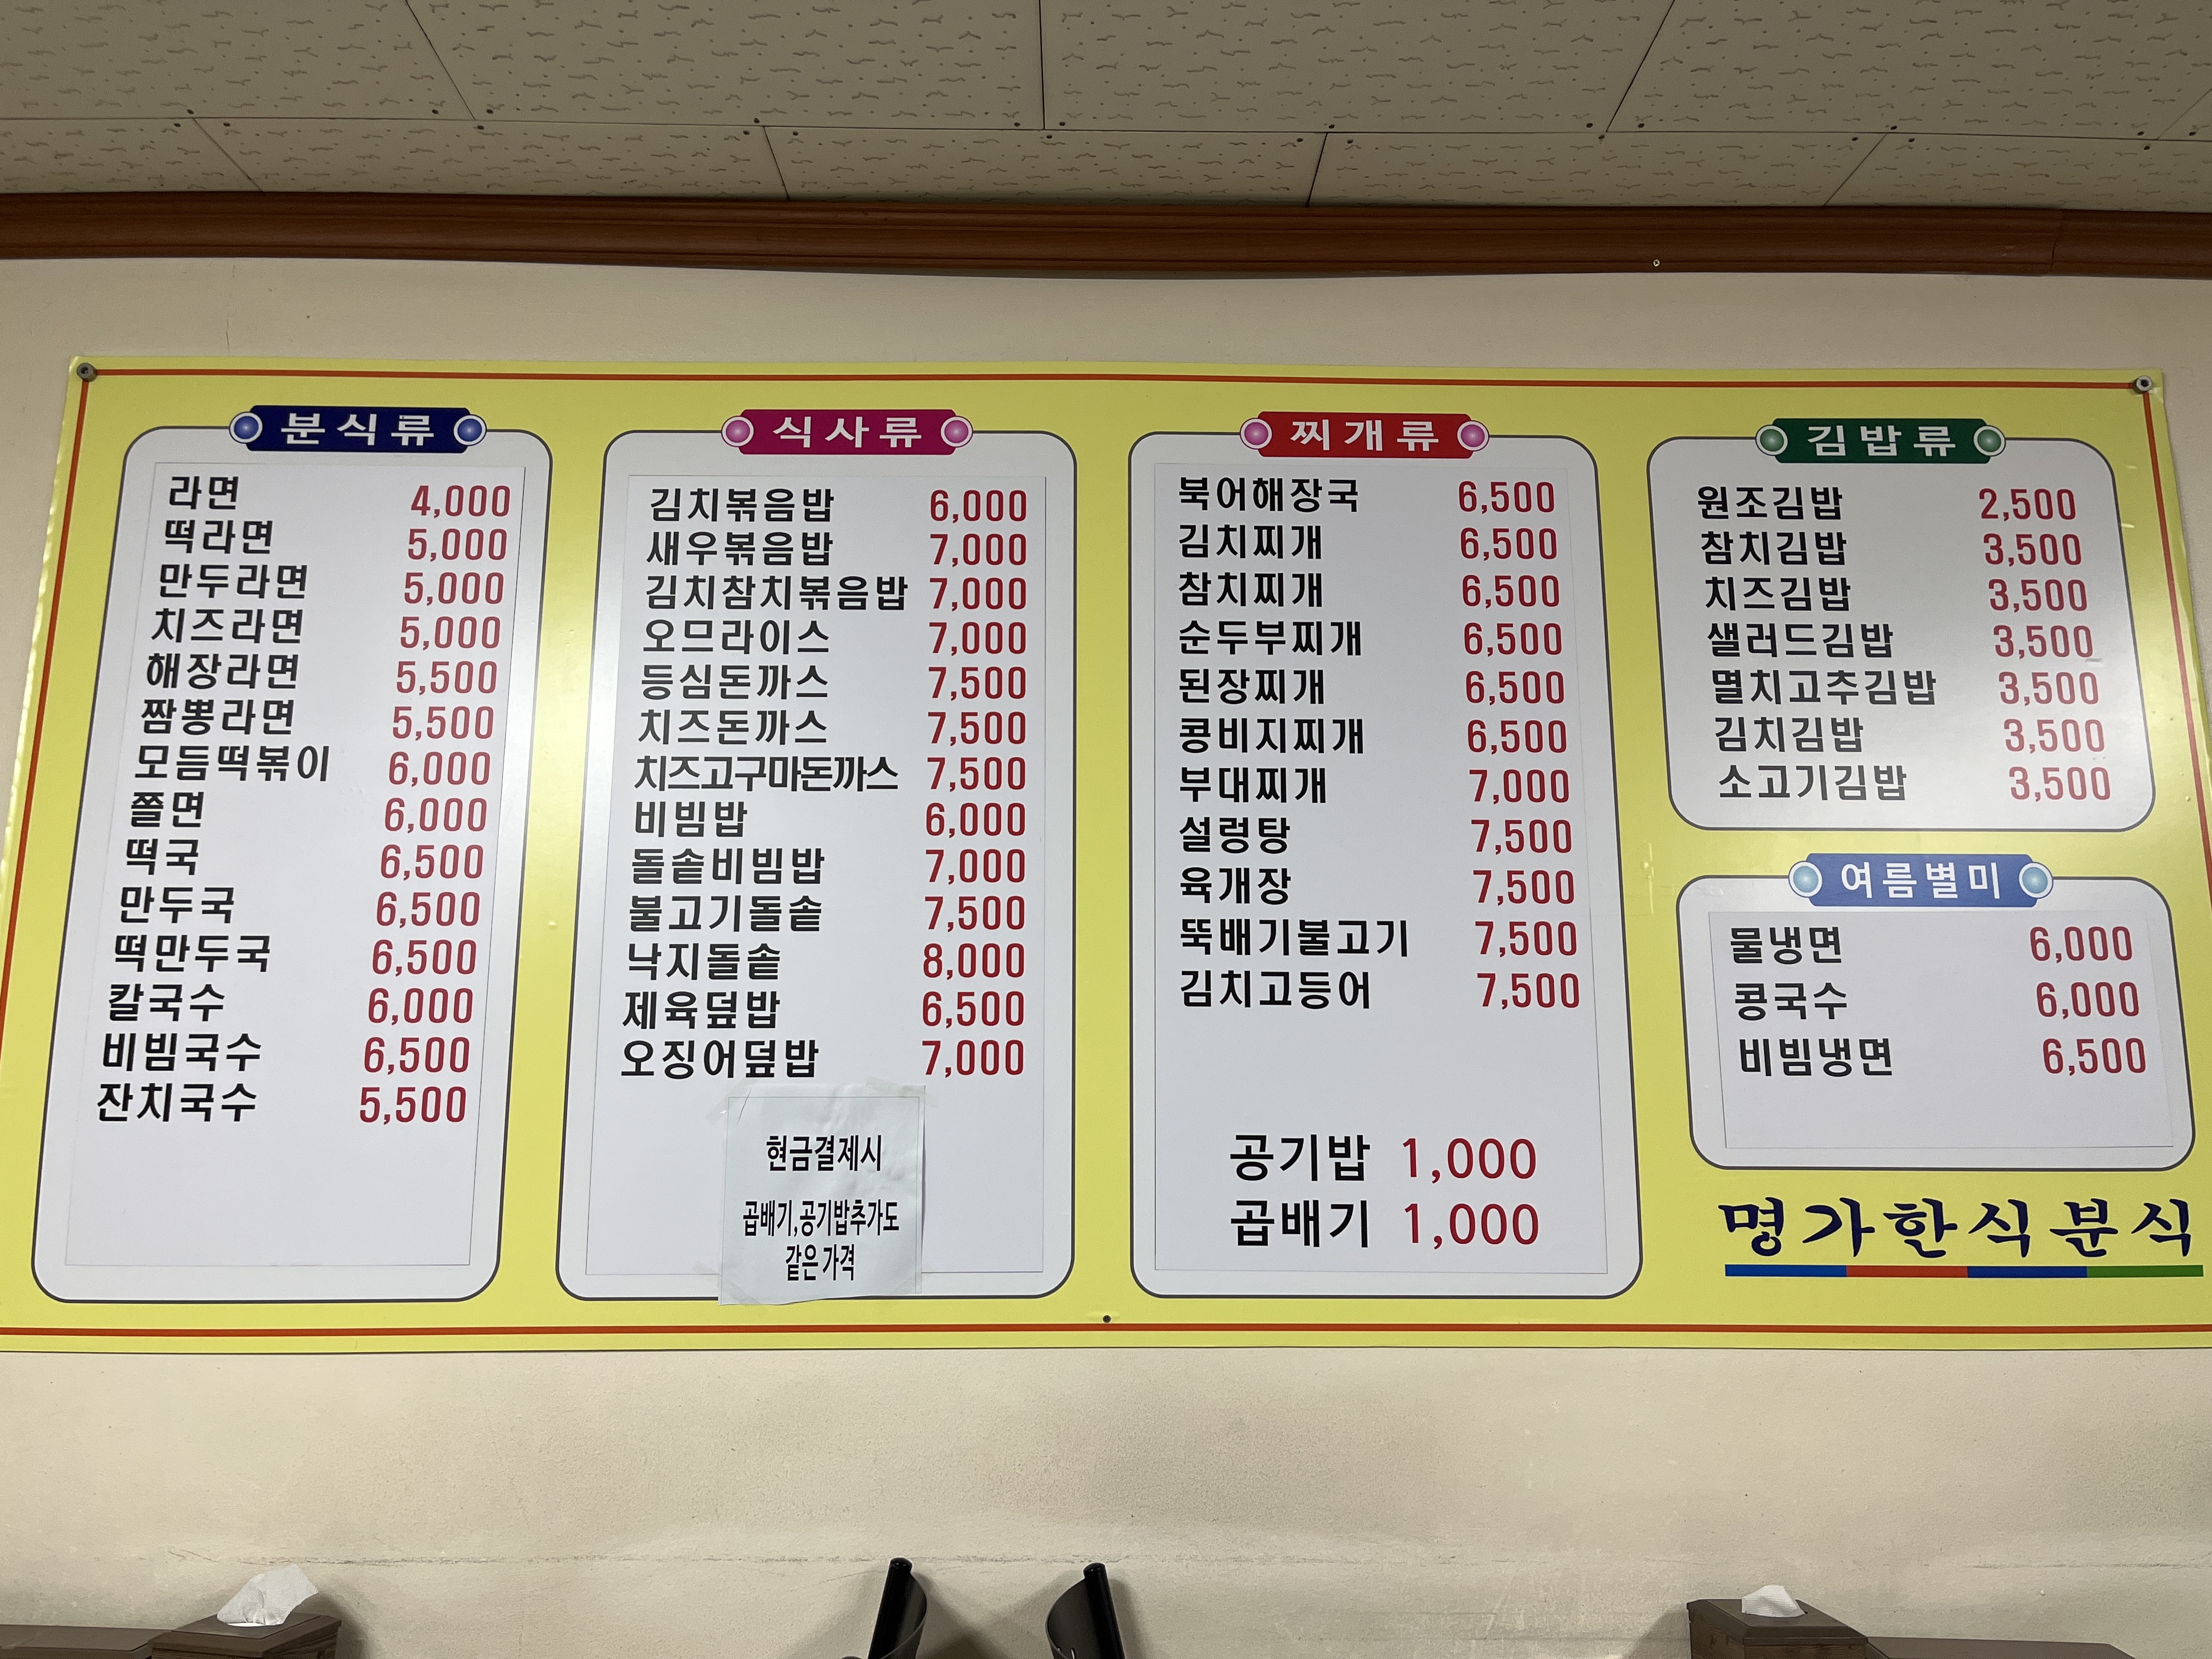 분식류
라면 4,000
떡라면 5,000
만두라면 5,000
치즈라면 5,000
해장라면 5,500
짬뽕라면 5,500
모듬떡볶이 6,000
쫄면 6,000
떡국 6,500
만두국 6,500
떡만두국 6,500
칼국수 6,000
비빔국수 6,500
잔치국수 5,500
식사류
김치볶음밥 6,000
새우볶음밥 7,000
김치참치볶음밥 7,000
오므라이스 7,000
등심돈까스 7,500
치즈돈까스 7,500
치즈고구마돈까스 7,500
비빔밥 6,000
돌솥비빔밥 7,000
불고기돌솥 7,500
낙지돌솥 8,000
제육덮밥 6,500
오징어덮밥 7,000
현금결제시
곱배기,공기밥추가도
같은 가격
찌개류
북어해장국 6,500
김치찌개 6,500
참치찌개 6,500
순두부찌개 6,500
된장찌개 6,500
콩비지찌개 6,500
부대찌개 7,000
설렁탕 7,500
육개장 7,500
뚝배기불고기 7,500
김치고등어 7,500
공기밥 1,000
곱배기 1,000
김밥류
원조김밥 2,500
참치김밥 3,500
치즈김밥 3,500
샐러드김밥 3,500
멸치고추김밥 3,500
김치김밥 3,500
소고기김밥 3,500
여름별미
물냉면 6,000
콩국수 6,000
비빔냉면 6,500
명가한식분식